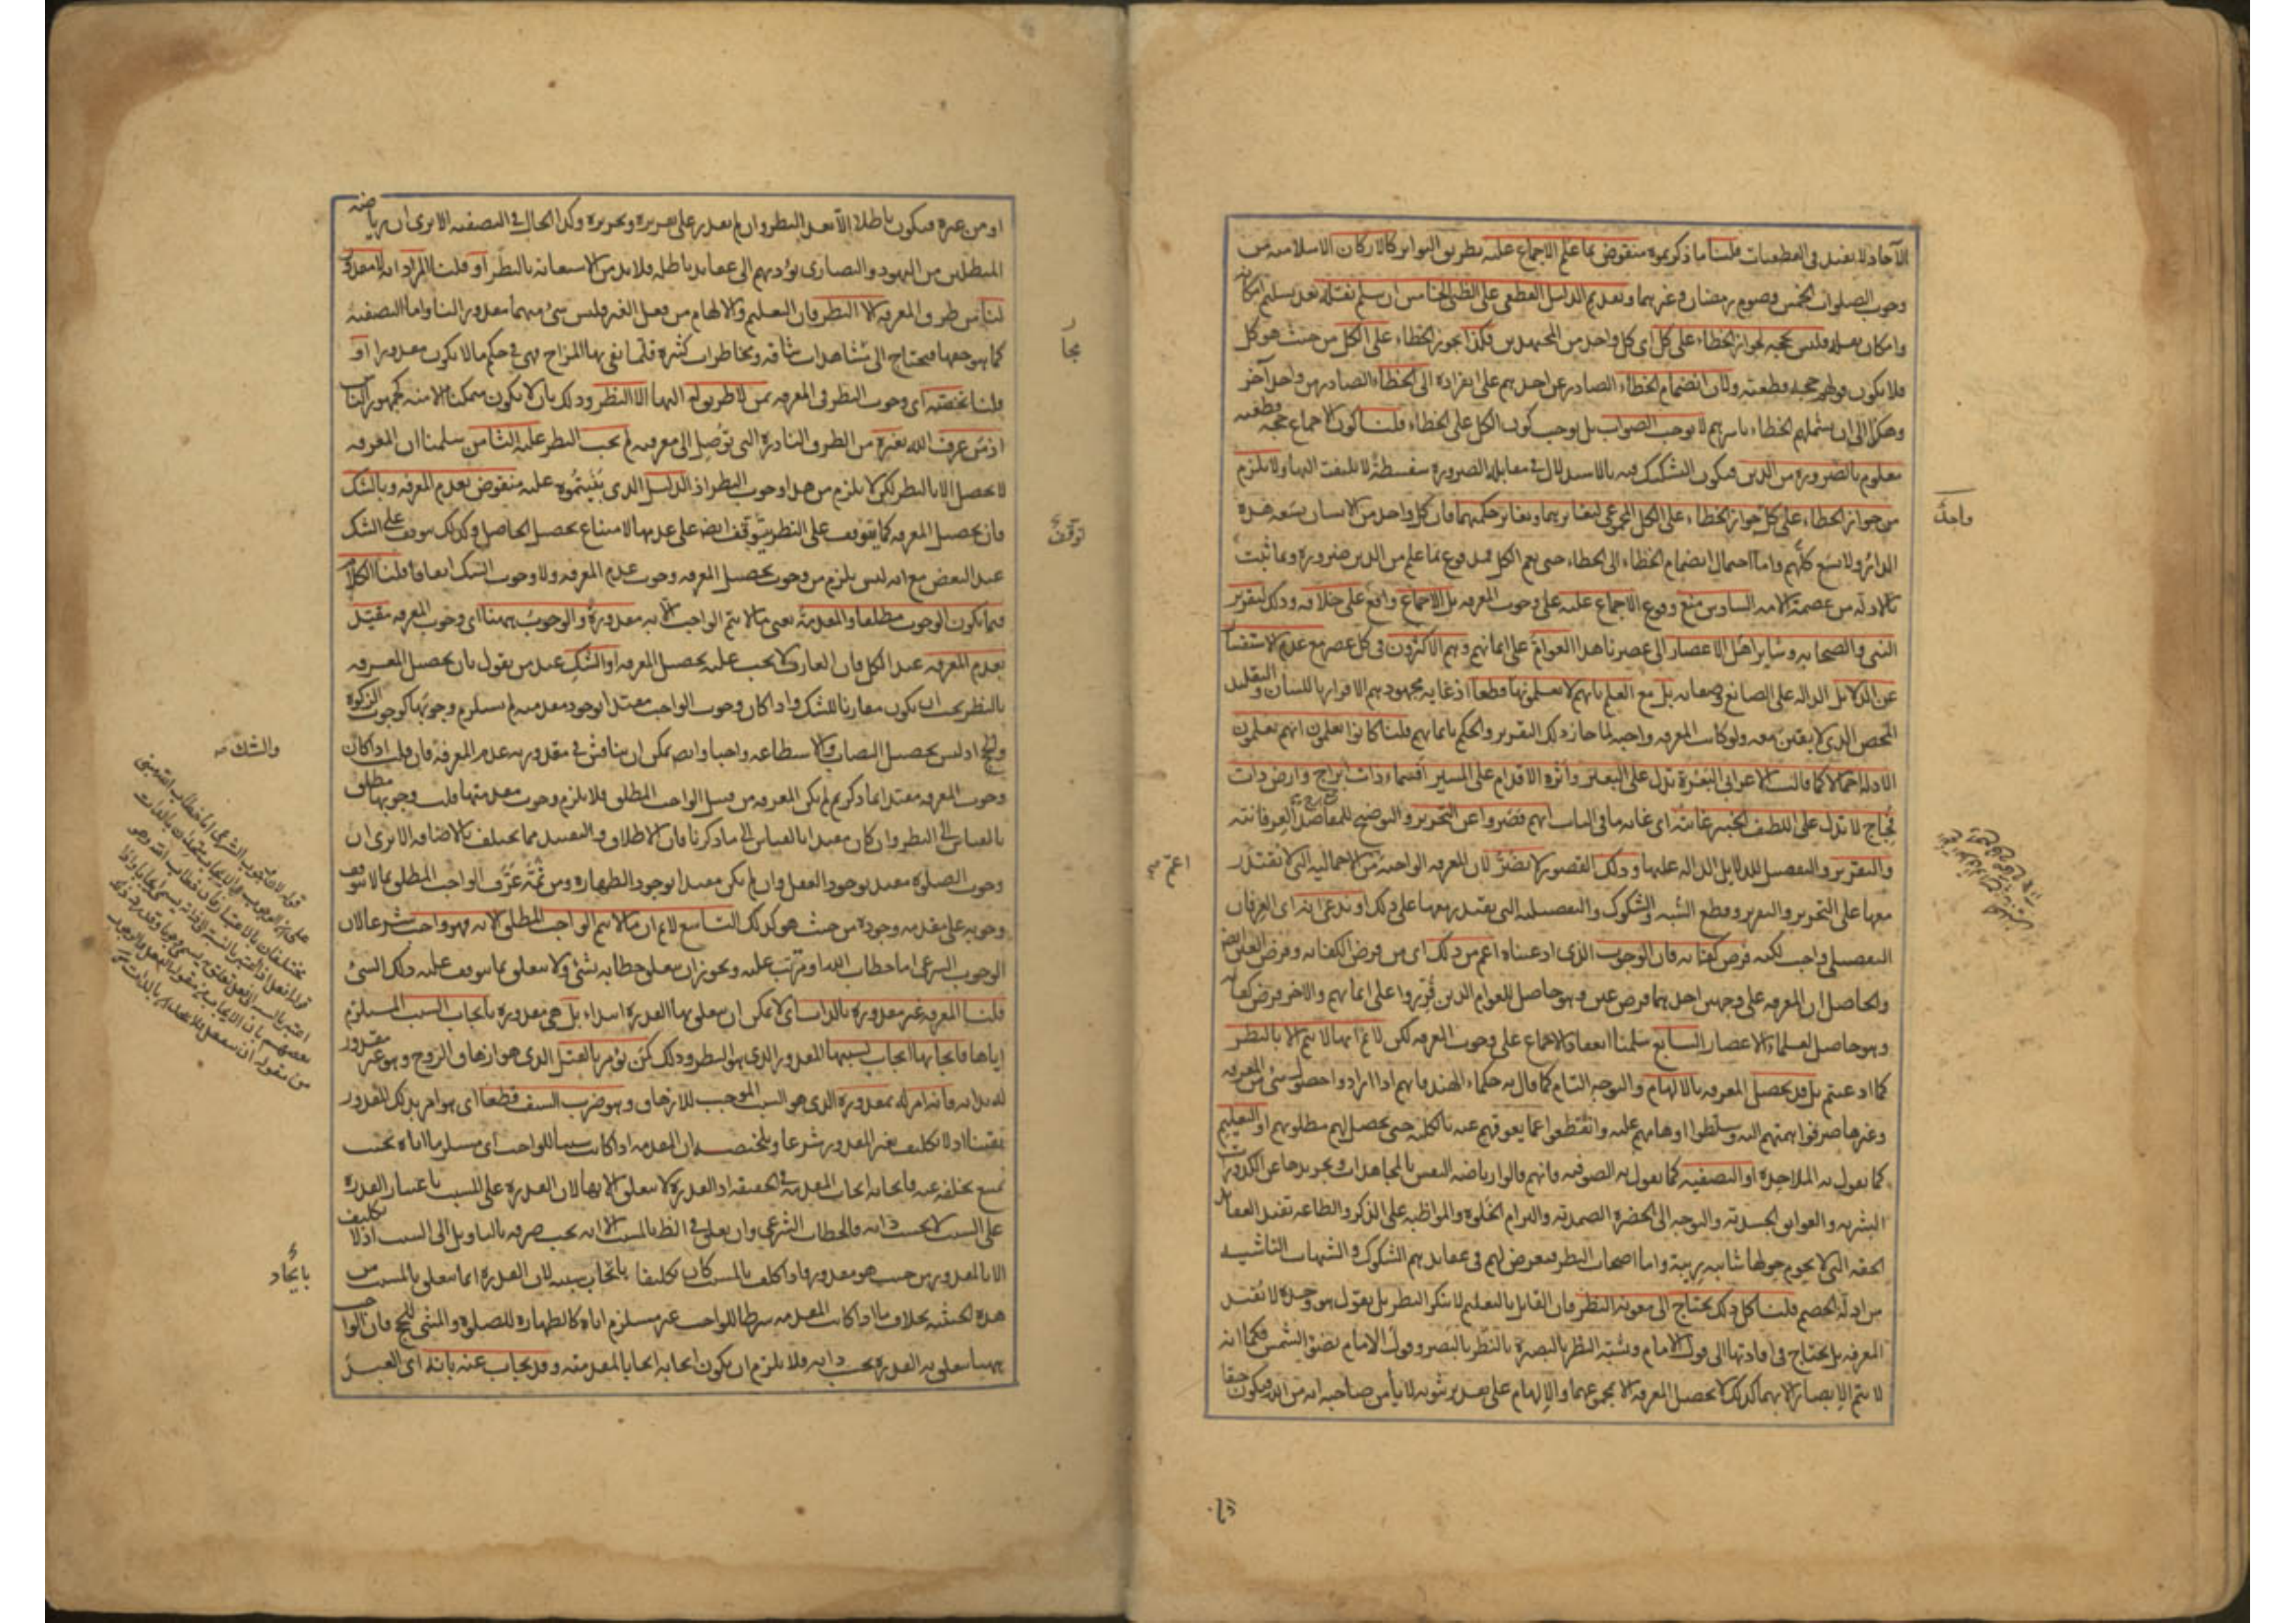 الآحاد لا يفيد في القطعيات قلنا ما ذكرتموه منقوض بما علم الاجماع عليه بطريق التواتر كالاركان الاسلامية من
وجوب الصلوات الخمس وصوم رمضان وغيرهما وتقديم الدليل القطعي على الظني الخامس ان سلم نقله بعد تسليم امكانه
وامكان نقله فليس بحجة لجواز الخطاء على كل اى كل واحد من المجتهدين فكذا يجوز الخطاء على الكل من حيث هو كل
فلا يكون قولهم حجة قطعية ولان انضمام الخطاء الصادر عن احدهم على انفراده الى الخطاء الصادر من واحد آخر
وهكذا الى ان يشملهم الخطاء باسرهم لا يوجب الصواب بل يوجب كون الكل على الخطاء قلنا كون الاجماع حجة قطعية
معلوم بالضرورة من الدين فيكون التشكيك فيه بالاستدلال في مقابلة الضرورة سفسطة لا يلتفت اليها ولا يلزم
من جواز الخطاء على كل جواز الخطاء على الكل المجموعي لتغايرهما وتغاير حكمهما فان كل واحد من الانسان يسعه هذه
الدار ولا تسع كلهم واما احتمال انضمام الخطاء الى الخطاء حتى يعم الكل فمدفوع بما علم من الدين ضرورة وبما ثبت
بالادلة من عصمة الامة السادس منع وقوع الاجماع عليه على وجوب المعرفة بل الاجماع واقع على خلافه وذلك لتقرير
النبي والصحابه وساير اهل الاعصار الى عصرنا هذا العوام على ايمانهم وهم الاكثرون في كل عصر مع عدم الاستفسار
عن الدلايل الدالة على الصانع وصفاته بل مع العلم بانهم لا يعلمونها قطعا اذ غاية مجهودهم الاقرار باللسان والتقليد
المحض الذي لا يقين معه ولو كانت المعرفة واجبة لما جاز ذلك التقرير والحكم بايمانهم قلنا كانوا يعلمون انهم يعلمون
الادلة اجمالا كما قالت الاعرابي البعرة تدل على البعير واثره الاقدام على المسير افسماء ذات ابراج وارض ذات
فجاج لا تدل على اللطيف الخبير غايته اى غاية ما في الباب انهم قصروا عن التحرير والتوضيح للمقاصد العرفانية
والتقرير والتفصيل للدلايل الدالة عليها وذلك القصور لا يضر لان المعرفة الواجبة من الاجمالية التي لا يقتدر
معها على التحرير والتقرير ودفع الشبه والشكوك والتفصيلية التي يقتدر معها على ذلك او ندعي انه اى العرفان
التفصيلي واجب لكنه فرض كفاية فان الوجوب الذي ادعيناه اعم من ذلك اى من فرض الكفاية وفرض العين ايضا
والحاصل ان المعرفة على وجهين احدهما فرض عين وهو حاصل للعوام الذين قرروا على ايمانهم والآخر فرض كفاية
وهو حاصل لعلماء الاعصار السابع سلمنا انعقاد الاجماع على وجوب المعرفة لكن لا نم انها لا تتم الا بالنظر
كما ادعيتم بل قد يحصل المعرفة بالالهام والتوجه التام كما قال به حكماء الهند فانهم اذا ارادوا حصول شئ من المعرفة
وغيرها صرفوا همتهم اليه وسلطوا اوهامهم عليه وانقطعوا عما يعوقهم عنه بالكلية حتى يحصل لهم مطلوبهم او التعليم
كما يقول به الملاحدة او التصفية كما يقول به الصوفية فانهم قالوا رياضة النفس بالمجاهدات وتجريدها عن الكدورات
البشرية والعوايق الجسدية والتوجه الى الحضرة الصمدية والتزام الخلوة والمواظبة على الذكر والطاعة تفيد العقايد
الحقة التي لا يحوم حولها شائبة ريبة واما اصحاب النظر فيعرض لهم في عقايدهم الشكوك والشبهات الناشية
من ادلة الخصم قلنا كل ذلك يحتاج الى معونة النظر فان القايل بالتعليم لا ينكر النظر بل يقول هو وحده لا يفيد
المعرفة بل يحتاج في افادتها الى قول الامام ويشبه النظر بالبصيرة بالنظر بالبصر وقول الامام بضوء الشمس فكما انه
لا يتم الابصار الا بهما كذلك لا يحصل المعرفة الا بمجموعهما والالهام على تقدير ثبوته لا يأمن صاحبه انه من الله فيكون حقا
واحدٌ
اعم
او من غيره فيكون باطلا الا بعد النظر وان لم يقدر على تقريره وتحريره وكذا الحال في التصفية الا يرى ان رياضة
المبطلين من اليهود والنصارى تؤديهم الى عقايد باطلة فلا بد من الاستعانة بالنظر او قلنا المراد انه لا مقدور
لنا من طرق المعرفة الا النظر فان التعليم والالهام من فعل الغير فليس شئ منهما مقدورا لنا واما التصفية
كما هو حقها فيحتاج الى مجاهدات شاقة ومخاطرات كثيرة قلما يفي بها المزاج فهي في حكم ما لا يكون مقدورا او
قلنا نخصه اى وجوب النظر في المعرفة بمن لا طريق له اليها الا النظر وذلك بان لا يكون متمكنا الا منه كجمهور الناس
اذ من عرف الله بغيره من الطرق النادرة التي توصل الى معرفته لم يجب النظر عليه الثامن سلمنا ان المعرفة
لا تحصل الا بالنظر لكن لا يلزم من هذا وجوب النظر اذ الدليل الذي بنيتموه عليه منقوض بعدم المعرفة وبالشك
فان تحصيل المعرفة كما يتوقف على النظر يتوقف ايضا على عدمها لامتناع تحصيل الحاصل وكذلك يتوقف على الشك
عند البعض مع انه ليس يلزم من وجوب تحصيل المعرفة وجوب عدم المعرفة ولا وجوب الشك اتفاقا قلنا الكلام
فيما يكون الوجوب مطلقا والمقدمة يعني ما لا يتم الواجب الا به مقدورة والوجوب ههنا اى وجوب المعرفة مقيد
بعدم المعرفة عند الكل فان العارف لا يجب عليه تحصيل المعرفة او الشك عند من يقول بان تحصيل المعرفة
بالنظر يجب ان يكون مقارنا للشك واذا كان وجوب الواجب مقيدا بوجود مقدمة لم يستلزم وجوبها كوجوب الزكوة
والحج اذ ليس تحصيل النصاب والاستطاعة واجبا وايضا يمكن ان يناقش في مقدورية عدم المعرفة فان قلت اذا كان
وجوب المعرفة مقيدا بما ذكرتم لم تكن المعرفة من قبيل الواجب المطلق فلا يلزم وجوب مقدمتها قلت وجوبها مطلق
بالقياس الى النظر وان كان مقيدا بالقياس الى ما ذكرنا فان الاطلاق والتقييد مما يختلف بالاضافة الا يرى ان
وجوب الصلوة مقيد بوجود العقل وان لم يكن مقيدا بوجود الطهارة ومن ثمة عرف الواجب المطلق بما لا يتوقف
وجوبه على مقدمة وجوده من حيث هو كذلك التاسع لا نم ان ما لا يتم الواجب المطلق الا به فهو واجب شرعا لان
الوجوب الشرعي اما خطاب الله او مترتب عليه ويجوز ان يتعلق خطابه بشئ ولا يتعلق بما يتوقف عليه ذلك الشئ
قلنا المعرفة غير مقدورة بالذات اى لا يمكن ان يتعلق بها القدرة ابتداء بل هي مقدورة بايجاب السبب المستلزم
اياها فايجابها ايجاب لسببها المقدور الذي هو النظر وذلك كمن يؤمر بالقتل الذي هو ازهاق الروح وهو غير مقدور
له بذاته فانه امر له بمقدوره الذي هو السبب الموجب للازهاق وهو ضرب السيف قطعا اى هو امر بذلك المقدور
يقينا اذ لا تكليف بغير المقدور شرعا وتلخيصه ان المقدمة اذا كانت سببا للواجب اى مستلزما اياه بحيث
يمتنع تخلفه عنه فايجابه ايجاب المقدمة في الحقيقة اذ القدرة لا تتعلق الا بها لان القدرة على المسبب باعتبار القدرة
على السبب لا بحسب ذاته فالخطاب الشرعي وان تعلق في الظاهر بالمسبب الا انه يجب صرفه بالتاويل الى السبب اذ لا تكليف
الا بالمقدور من حيث هو مقدور فاذا كلف بالمسبب كان تكليفا بايجاد سببه لان القدرة انما تتعلق بالمسبب من
هذه الحيثية بخلاف ما اذا كانت المقدمة شرطا للواجب غير مستلزم اياه كالطهارة للصلوة والمشي للحج فان الواجب
ههنا يتعلق به القدرة بحسب ذاته فلا يلزم ان يكون ايجابه ايجابا لمقدمته وقد يجاب عنه بانه اى العبد
مجا
توقف
والشك صه
بايجاد